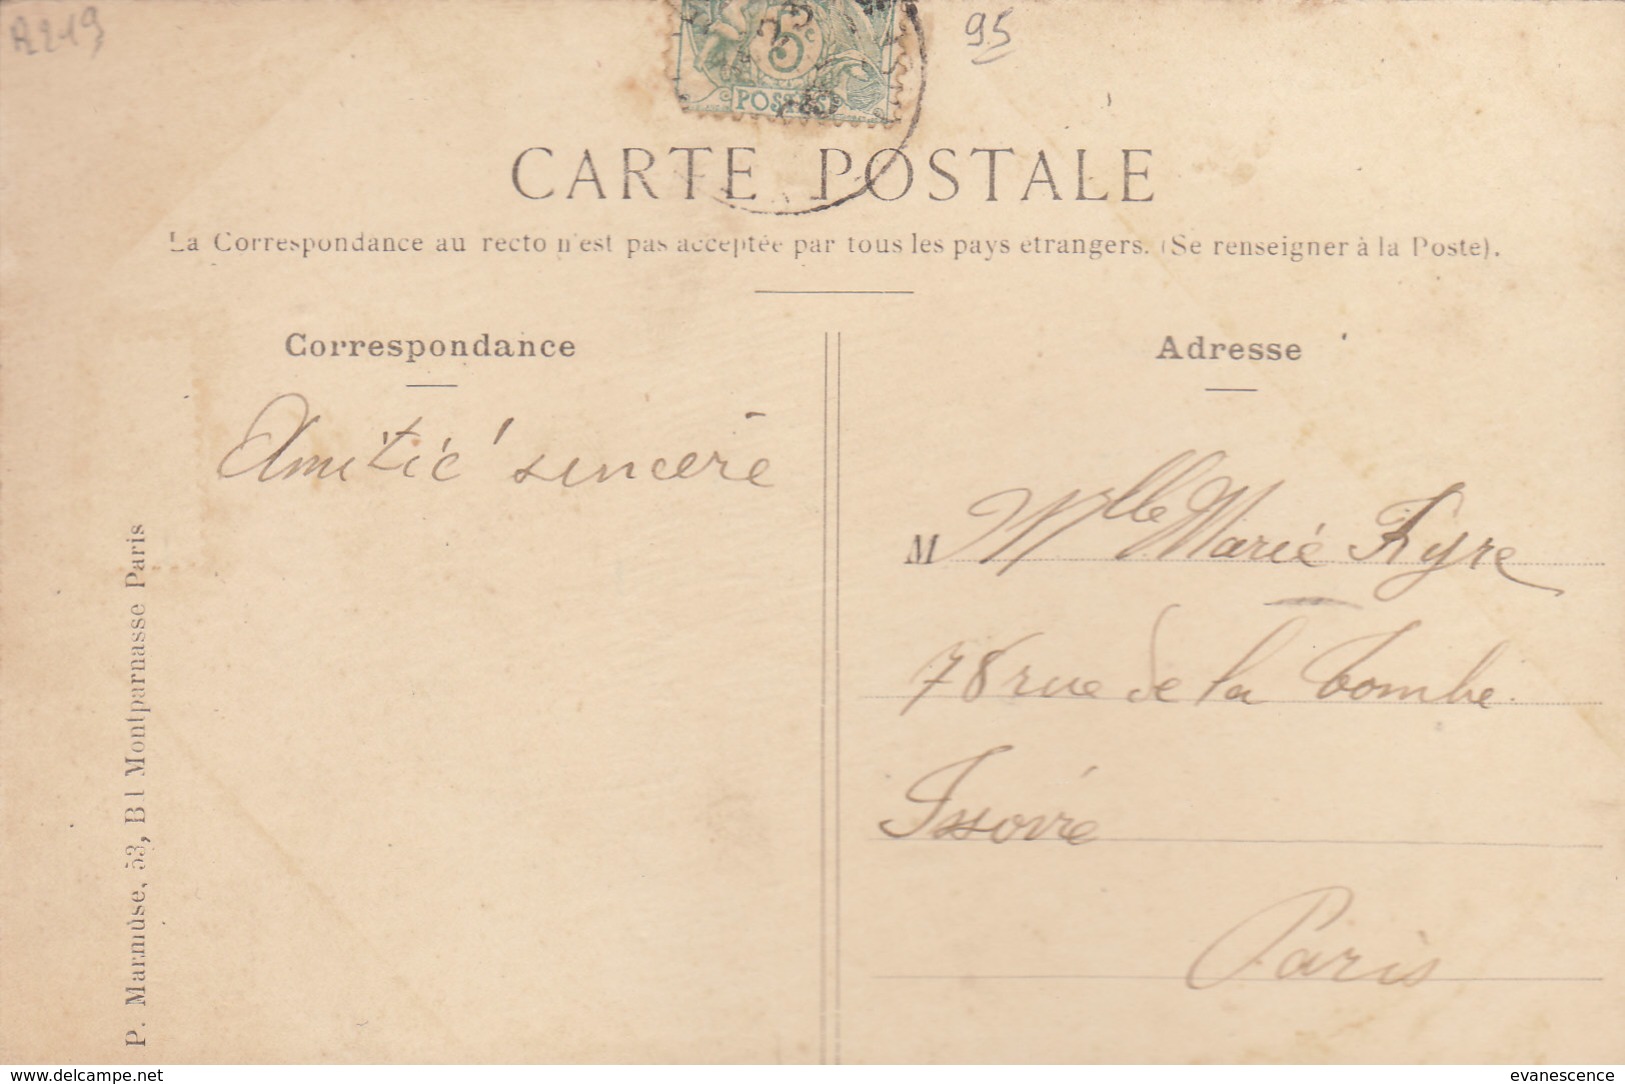 A219
95
5c
POSTES
CARTE POSTALE
La Correspondance au recto n'est pas acceptée par tous les pays etrangers. (Se renseigner à la Poste).
Correspondance
Amitié sincère
P. Marmuse, 53, Bl Montparnasse Paris
Adresse
M Mlle Marie
78 rue de la Tombe
Issoire
Paris
www.delcampe.net
evanescence